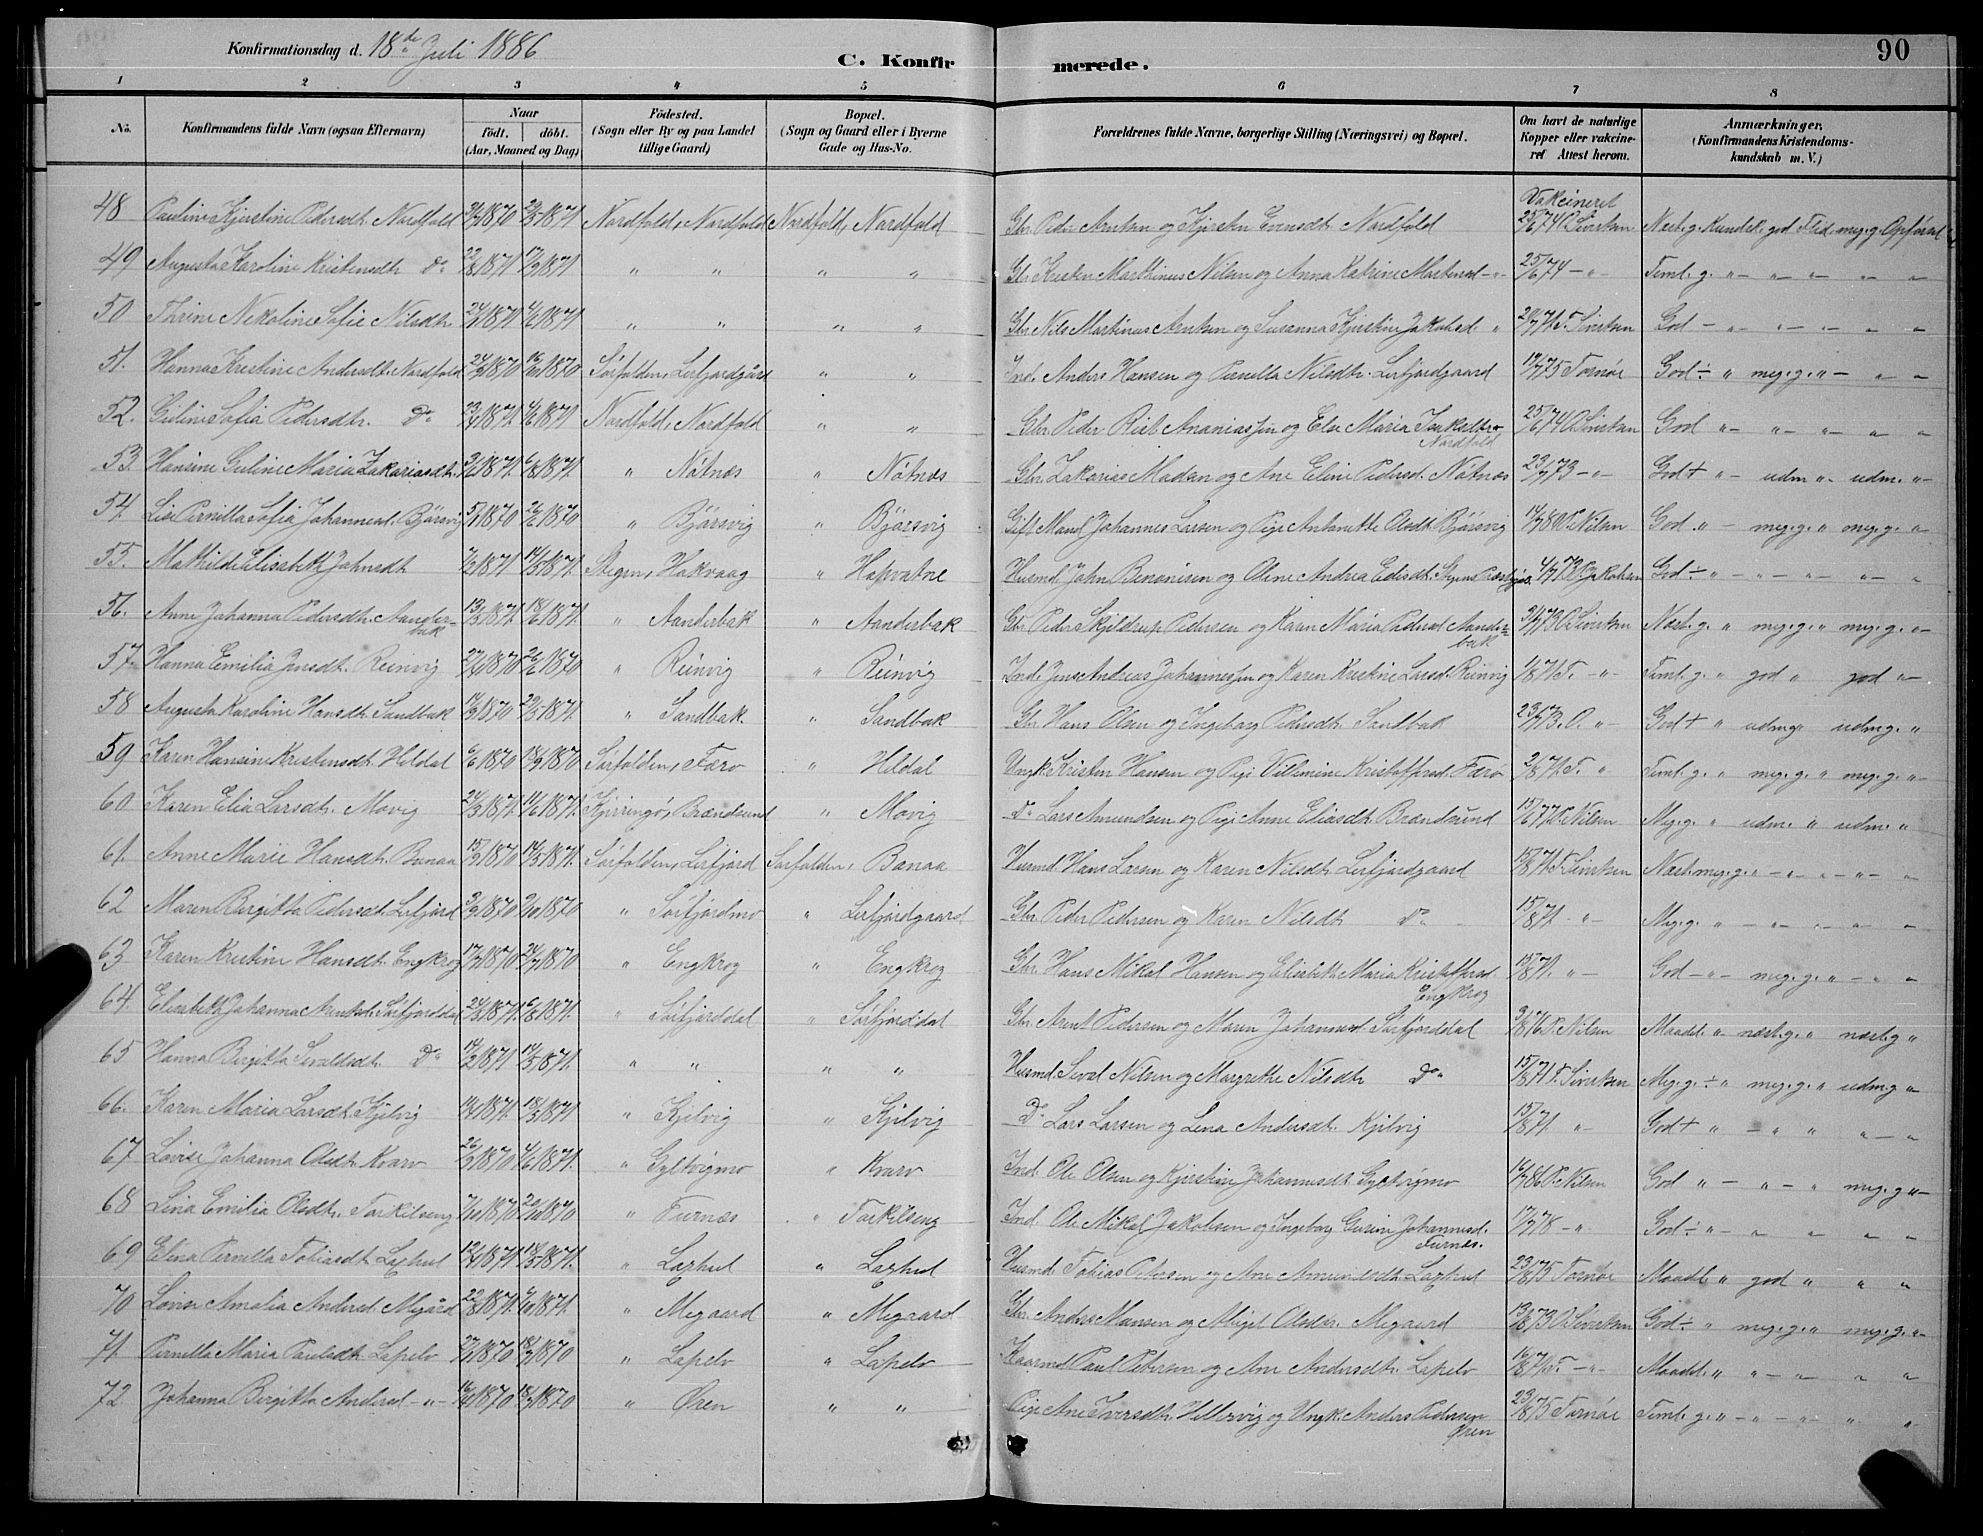 Konfirmationsdag d. 18de Juli 1886
C. Konfirmerede.
90
1 2 3 4 5 6 7 8
No. Konfirmandens fulde Navn (ogsaa Efternavn) Naar födt. döbt. (Aar, Maaned og Dag) Födested. (Sogn eller By og paa Landet tillige Gaard) Bopæl. (Sogn og Gaard eller i Byerne Gade og Hus-No. Forældrenes fulde Navne, borgerlige Stilling (Næringsvei) og Bopæl. Om havt de naturlige Kopper eller vakcineret Attest herom. Anmærkninger, (Konfirmandens Kristendomskundskab m. V.)
Vakcineret
48 Pauline Kjerstine Pedersdt. Nordfold 1870 1871 Nordfold, Nordfold Nordfold, Nordfold Gbr. Peder Arntsen og Kjersten Evensdt. Nordfold 25/6 74 O. Sivertsen Næst. g. Kundsk. god Flid meg. g. Opförsel
49 Augusta Karoline Kristensdt. Do 1871 1871 " " " " Gbr. Kristen Marthinus Nilsen og Anna Katrine Martinsd. -"- 25/6 74 -"- Teml. g. " - " - " "
50 Thrine Nekoline Sofie Nilsdt. 1871 4/6 1871 " " " " Gbr. Nils Martinus Arntsen og Susanna Kjerstine Jakobsd. " 71 T. Sivertsen God - " - " - " "
51. Hanna Kristine Andersdt. Nordfold 1870 1870 Sörfolden, Leifjordgård " " Ind. Anders Hansen og Pernella Nilsdtr. Leifjordgaard 75 Tornöe God ÷ " meg. g. " - " "
52. Guline Sofia Pedersdtr. Do 1871. 4/6 1871 Nordfold, Nordfold " " Gbr. Peder Rist Ananiassen og Else Maria Nordfold 25/6 74 O. Sivertsen God " - " - " "
53. Hansine Guline Maria Zakariasdt. 1871. 1871 " Nötnæs " Nötnæs Gbr. Zakarias Madsen og Ane Eline Pedersd. Nötnæs 23/7 73 -"- God + " - udm " - udm. " -
54. Lise Pernilla Sofia Johannesd. Björsvig 1870 26/6 1870 " Björsvig " Björsvig Gift Mand Johannes Larsen og Pige Antonette Olsdt. Björsvig 80 P. Nilsen God. " - meg. g. " meg. g. " -
55. Mathilde Elisabeth Johnsdt. 1871 14/5 1871. Stegen, Hakvaag " Hopvatne Husmd. John Benonisen og Oline Andrea God ÷ " - " - " - "
56. Anne Johanna Pedersdt. Aanderbak 13/5 1871. 18/6 1871. " Aanderbak " Aanderbak Gbr. Peder Skjeldrup Pedersen og Karen Maria Pedersd. Aanderbak 73 O. Sivertsen Næst. g. " meg. g. " meg. g. " -
57. Hanna Emilia Jensdt. Reinvig 1870 26/6 1870 " Reinvig " Reinvig Ind. Jens Andreas Johannessen og Karen Kristine Larsd. Reinvig 71 T. -"- Teml. g. " god " god " -
58 Augusta Karoline Hansdt. Sandbak 1870 1871. " Sandbak. " Sandbak Gbr. Hans Olsen og Ingeborg Pedersdt. Sandbak 23/7 73. O. " God + " udm g. udm. g. "
59 Karen Hansine Kristensdt. Hildal 6/6 1870 18/9 1870 Sörfolden, Færö " Hildal Ungk. Kristen Hansen og Pige Vilhelmine Kristoffersd. Færö 71. T. " Teml. g. " meg. g. " meg. g. " -
60 Karen Elia Larsdt. Movig 24/3 1871. 1871. Kjerringö, Brændsund " Movig Do Lars Amundsen og Pige Anne Eliasdt. Brændsund 77 P. Nilsen Meg. g. " udm. " udm. "
61. Anne Marie Hansdt. Banaa 1870 14/5 1871. Sörfolden, Leifjord Sörfolden, Banaa Husmd. Hans Larsen og Karen Nilsdt. Leifjordgaard 15/8 71 T. Sivertsen Næst. meg. g. " - " - " -
62 Maren Birgitta Pedersdt. Leifjord 1870 1870 " Sörfjordmo " Leifjordgaard Gbr. Peder Pedersen og Karen Nilsdt. Do 15/8 71. -"- Meg. g. " - " - " "
63 Karen Kristine Hansdt. Engkrog 17/7 1870 24/7 1870 " Engkrog " Engkrog Gbr. Hans Mikal Hansen og Elisabeth Maria Kristoffersd. Engkrog 15/8 71. " God - " - meg. g. " - " -
64. Elisabeth Johanna Arntsd. Sörfjorddal 1871. 1871. " Sörfjorddal " Sörfjorddal Gbr. Arnt Pedersen og Maren Johannesd. Sörfjorddal 76 P. Nilsen Maadl. " næst. g. " næst. g "
65 Hanna Birgitta Sivaldsdt. Do 14/2 1871 14/5 1871. " " " " Husmd. Sival Nilsen og Margrethe Nilsdt. Do 15/8 71 T. Sivertsen Meg. g. ÷ " meg. g. " udm. g "
66. Karen Maria Larsdt. Kjelvig 1871. 1871 " Kjelvig " Kjelvig Do Lars Larsen og Lina Andersdt. Kjelvig 15/8 71. " God + " - " " " - "
67 Lovise Johanna Olsdt. Kvarv 1870 4/6 1871. " Gyltvigmo " Kvarv Ind. Ole Olsen og Kjerstine Johannesdt. Gyltvigmo 86 P. Nilsen God " - " - " meg. g " -
68 Lina Emilia Olsdt. Torkilseng 1870 1870 " Furnæs " Torkilseng Ind. Ole Mikal Jakobsen og Ingeborg Gurine Johannesd. Furnæs. 78 -"- God ÷ " " " " "
69 Elina Pernilla Tobiasdt. Laxhul 1871 1871. " Laxhul " Laxhul Husmd. Tobias Petersen og Ane Amundsdt. Laxhul 23/8 75 Tornöe Maadl. " god " " "
70 Lovise Amalia Andersd. Megård 22/8 1871. 1871. " Megaard " Megaard Gbr. Anders Monsen og Abigel Olsdtr. Megaard 73 O. Sivertsen God ÷ " meg. g. " meg. g. " -
71. Pernilla Maria Paulsdt. Lapelv 1870 1870 " Lapelv " Lapelv Kaarmd. Paul Petersen og Ane Andersdt. Lapelv T. -"- Maadl. " " - " " "
72 Johanna Birgitta Andersd. -"- 1870 1870 " Øren " " Pige Ane Iversdt. Hellervig og Ungk. Anders Pedersen Øren 23/8 75 Tornöe Teml. g. " - " - " " "